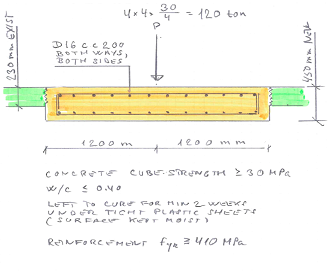 4 × 4 × 30/4 = 120 ton
P
D16 cc 200
BOTH WAYS,
BOTH SIDES
230 mm EXIST
450 mm NEW
1200 mm
1200 mm
CONCRETE CUBE-STRENGTH ≥ 30 MPa
W/C ≤ 0.40
LEFT TO CURE FOR MIN 2 WEEKS
UNDER TIGHT PLASTIC SHEETS
(SURFACE KEPT MOIST)
REINFORCEMENT fyk ≥ 410 MPa